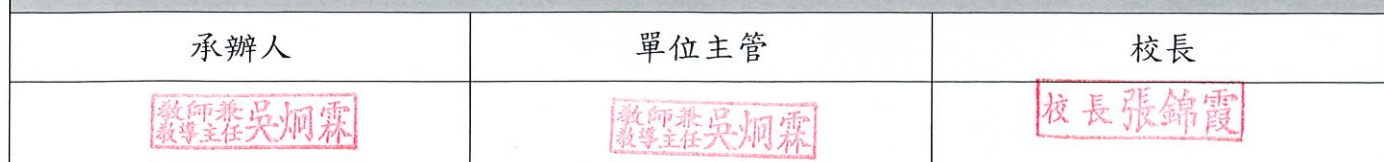 承辦人 單位主管 校長
教師兼教導主任吳炯霖 教師兼教導主任吳炯霖 校長張錦霞